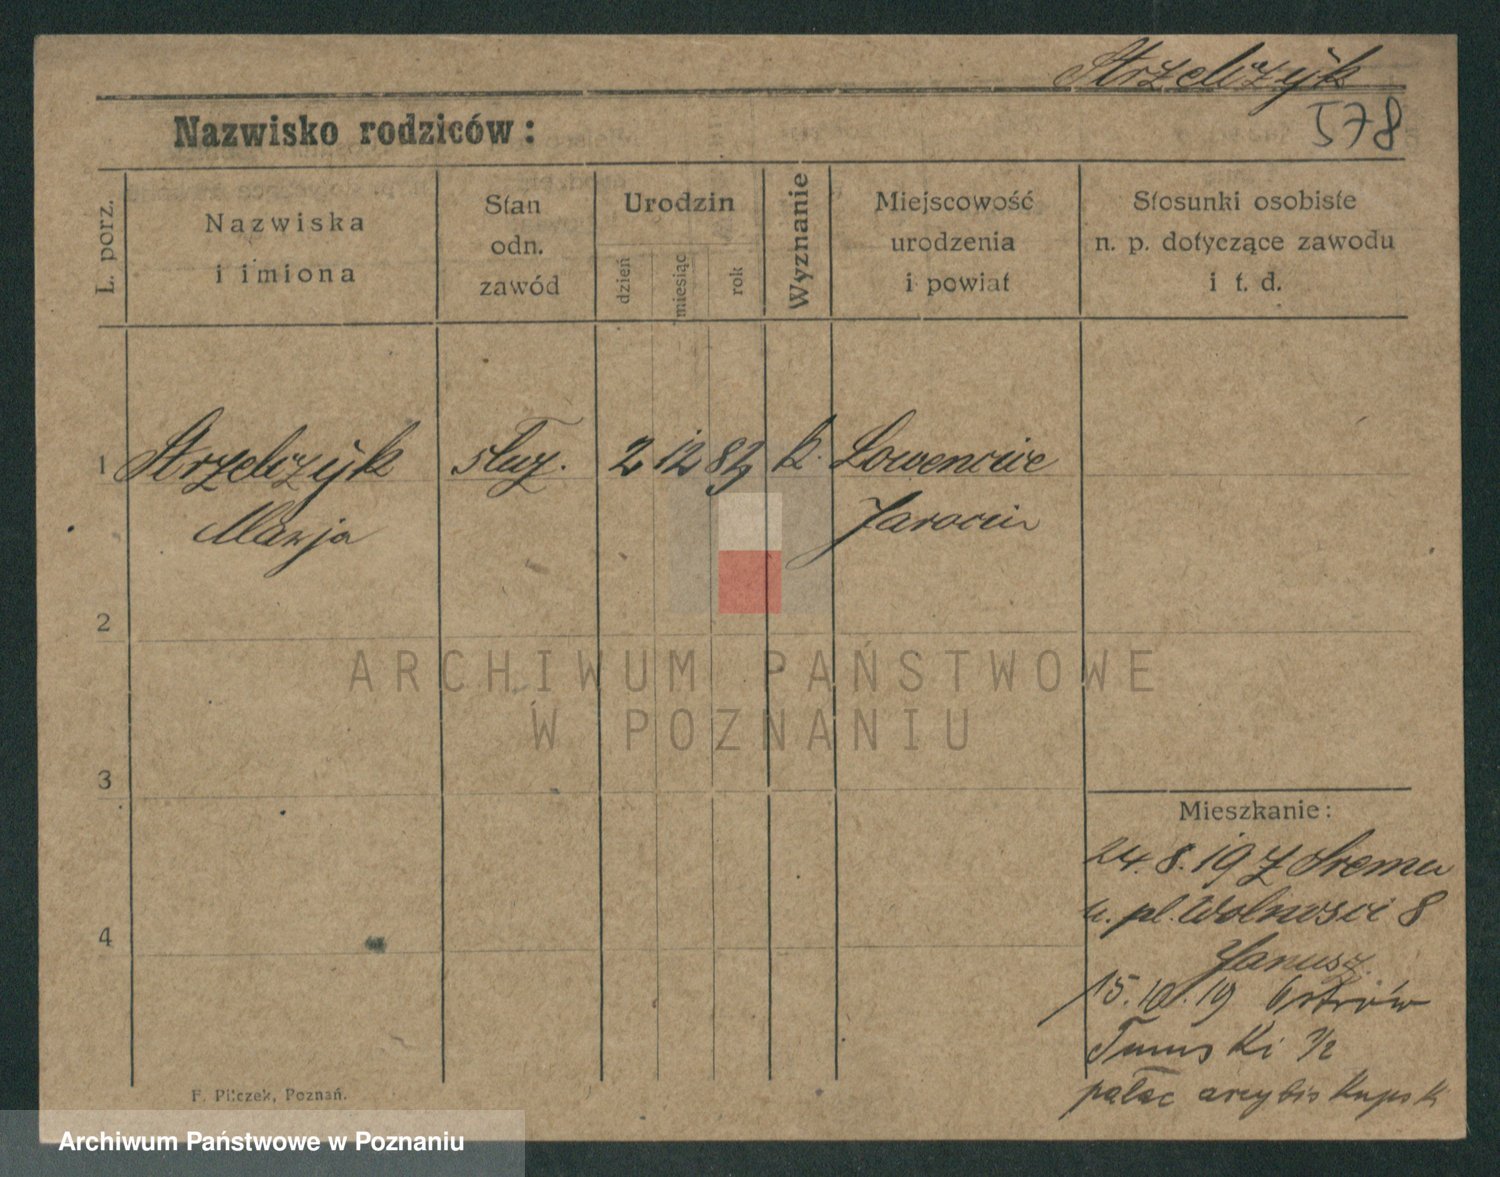 Strzelczyk
578
Nazwisko rodziców:
L. porz.
Nazwiska
i imiona
Stan
odn.
zawód
Urodzin
dzień
miesiąc
rok
Wyznanie
Miejscowość
urodzenia
i powiat
Stosunki osobiste
n. p. dotyczące zawodu
i t. d.
1 Strzelczyk służ. 2 12 83 k.
Marja Jarocin
2
ARCHIWUM PAŃSTWOWE
W POZNANIU
3
Mieszkanie:
24.8.19 z Śremu
u. pl. Wolności 8
Janusz
4
15.10.19 Ostrów
Tumski 1/2
pałac arcybiskupski
F. Pilczek, Poznań.
Archiwum Państwowe w Poznaniu